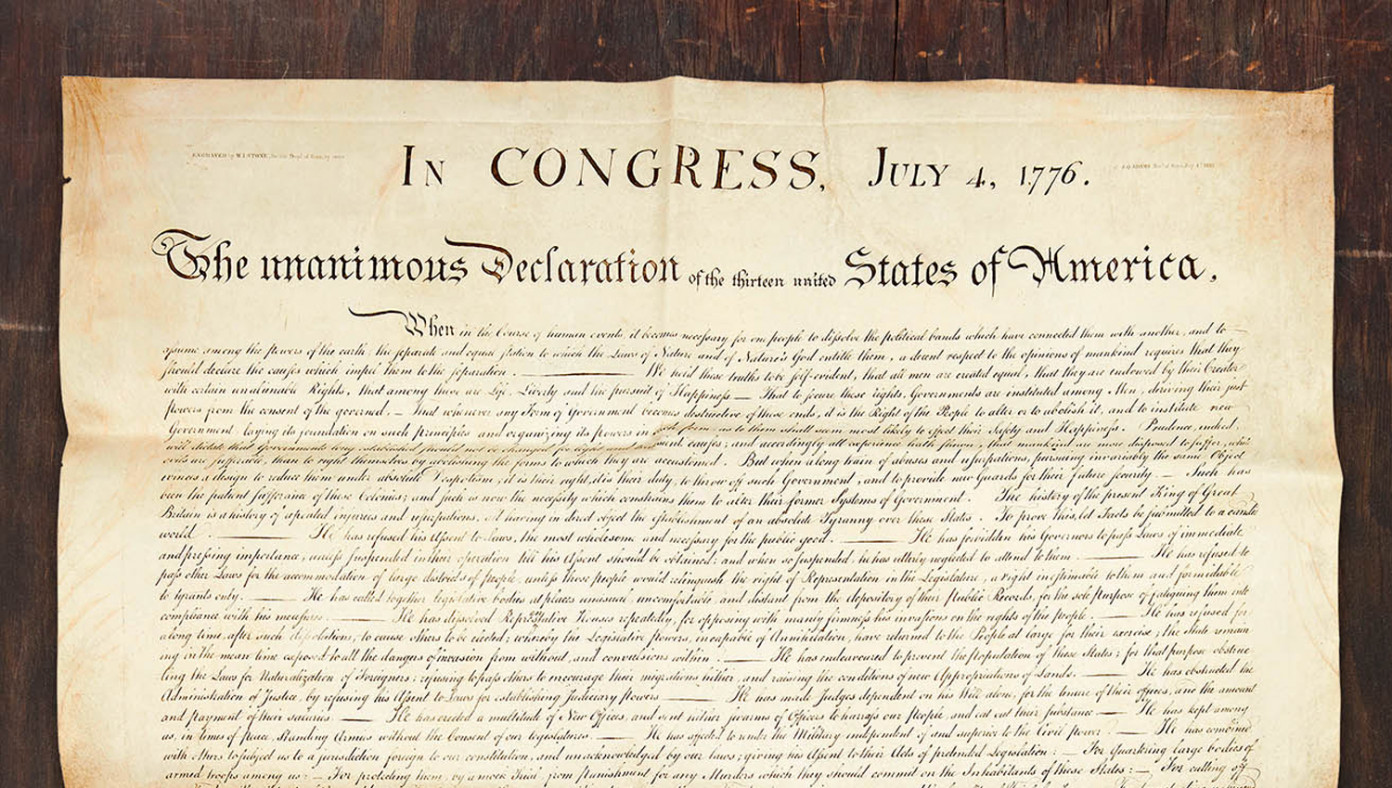 ENGRAVED by W.I.STONE,
In CONGRESS, July 4, 1776.
The unanimous Declaration of the thirteen united States of America,
When in the Course of human events, it becomes necessary for one people to dissolve the political bands which have connected them with another, and to
assume among the powers of the earth, the separate and equal station to which the Laws of Nature and of Nature's God entitle them, a decent respect to the opinions of mankind requires that they
should declare the causes which impel them to the separation. We hold these truths to be self-evident, that all men are created equal, that they are endowed by their Creator
with certain unalienable Rights, that among these are Life, Liberty and the pursuit of Happiness — That to secure these rights, Governments are instituted among Men, deriving their just
powers from the consent of the governed, — That whenever any Form of Government becomes destructive of these ends, it is the Right of the People to alter or to abolish it, and to institute new
Government, laying its foundation on such principles and organizing its powers in such form, as to them shall seem most likely to effect their Safety and Happiness. Prudence, indeed,
will dictate that Governments long established should not be changed for light and causes; and accordingly all experience hath shewn, that mankind are more disposed to suffer, while
evils are sufferable, than to right themselves by abolishing the forms to which they are accustomed. But when a long train of abuses and usurpations, pursuing invariably the same Object
evinces a design to reduce them under absolute Despotism, it is their right, it is their duty, to throw off such Government, and to provide new Guards for their future security. — Such has
been the patient sufferance of these Colonies; and such is now the necessity which constrains them to alter their former Systems of Government. The history of the present King of Great
Britain is a history of repeated injuries and usurpations, all having in direct object the establishment of an absolute Tyranny over these States. To prove this, let Facts be submitted to a candid
world. He has refused his Assent to Laws, the most wholesome and necessary for the public good. He has forbidden his Governors to pass Laws of immediate
and pressing importance, unless suspended in their operation till his Assent should be obtained; and when so suspended, he has utterly neglected to attend to them. He has refused to
pass other Laws for the accommodation of large districts of people, unless those people would relinquish the right of Representation in the Legislature, a right inestimable to them and formidable
to tyrants only. He has called together legislative bodies at places unusual, uncomfortable, and distant from the depository of their public Records, for the sole purpose of fatiguing them into
compliance with his measures. He has dissolved Representative Houses repeatedly, for opposing with manly firmness his invasions on the rights of the people. He has refused for
a long time, after such dissolutions, to cause others to be elected; whereby the Legislative powers, incapable of Annihilation, have returned to the People at large for their exercise; the State remain
ing in the mean time exposed to all the dangers of invasion from without, and convulsions within. He has endeavoured to prevent the population of these States; for that purpose obstruc
ting the Laws for Naturalization of Foreigners; refusing to pass others to encourage their migrations hither, and raising the conditions of new Appropriations of Lands. He has obstructed the
Administration of Justice, by refusing his Assent to Laws for establishing Judiciary powers He has made Judges dependent on his Will alone, for the tenure of their offices, and the amount
and payment of their salaries. He has erected a multitude of New Offices, and sent hither swarms of Officers to harrass our People, and eat out their substance He has kept among
us, in times of peace, Standing Armies without the Consent of our legislatures. He has affected to render the Military independent of and superior to the Civil power. He has combined
with others to subject us to a jurisdiction foreign to our constitution, and unacknowledged by our laws; giving his Assent to their Acts of pretended Legislation: — For Quartering large bodies of
armed troops among us: — For protecting them, by a mock Trial from punishment for any Murders which they should commit on the Inhabitants of these States: — For cutting off